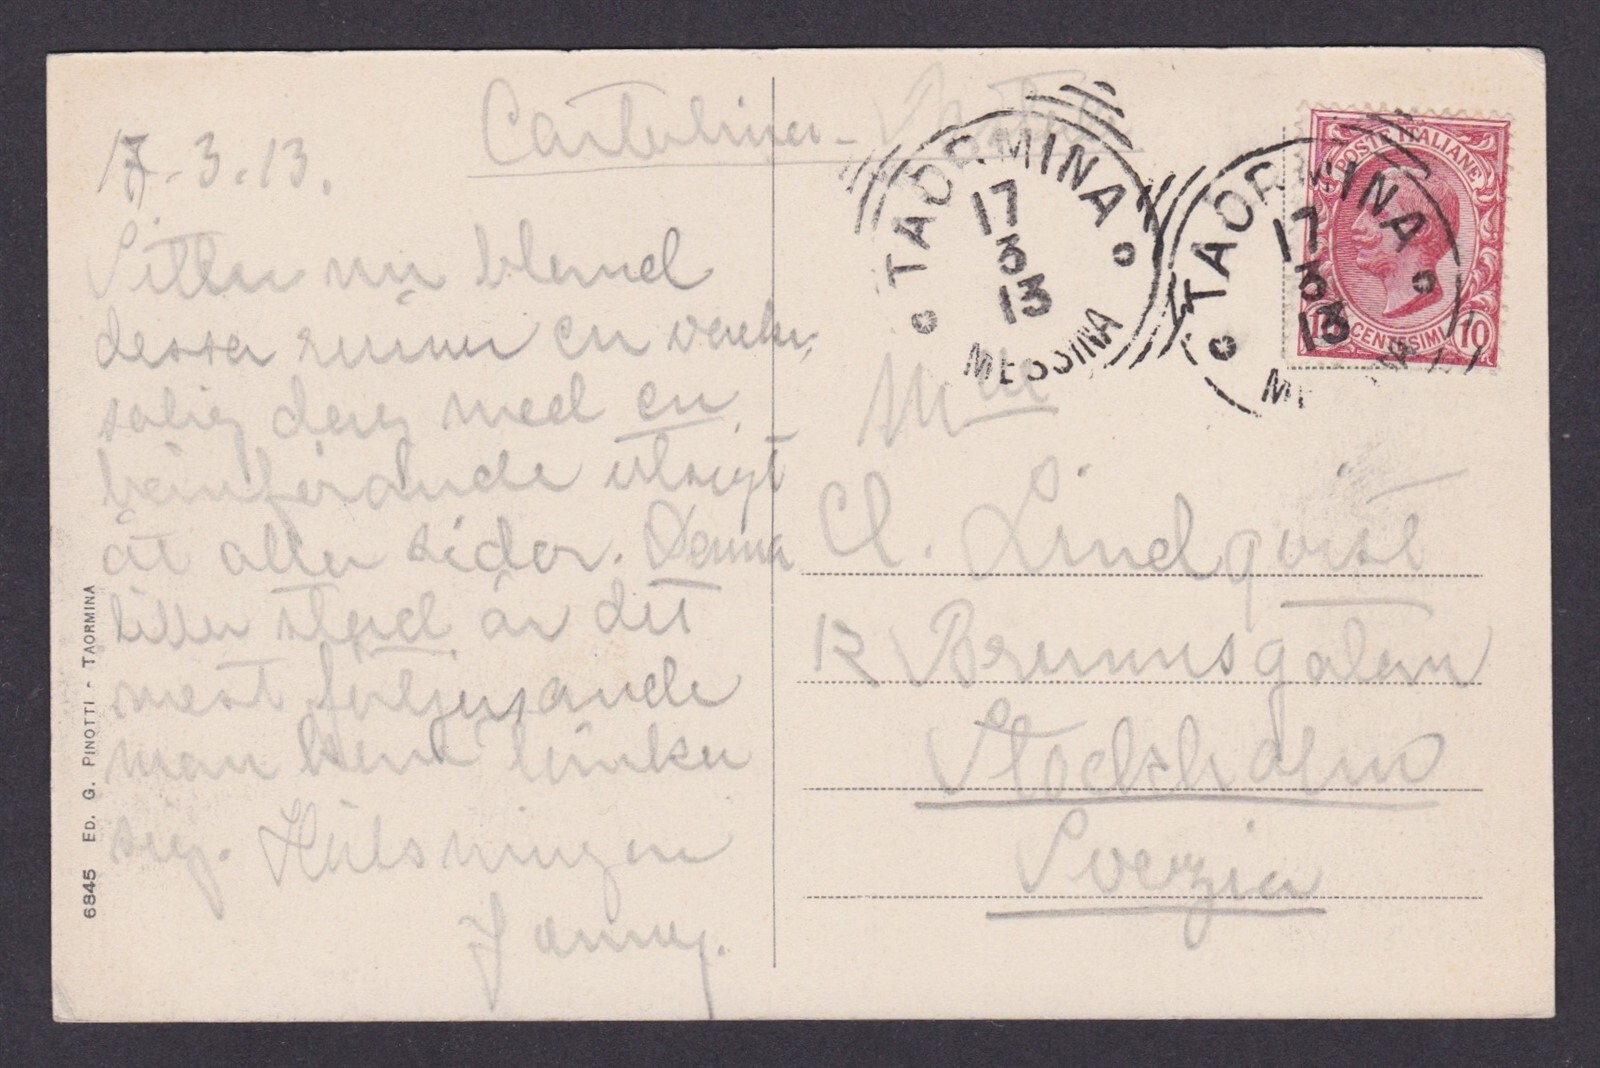 Cartolina - Postale
17.3.13.
Sitter nu bland
dessa ruiner en
solig dag med en
hänförande utsigt
åt alla sidor. Denna
lilla stad är det
mest förtjusande
man kan tänka
sig. Hälsningar
Fanny.
6845 ED. G. PINOTTI - TAORMINA
TAORMINA
17
3
13
MESSINA
TAORMINA
17
3
13
POSTE ITALIANE
CENTESIMI 10
Mlle
C. Lindqvist
12 Brunnsgatan
Stockholm
Svezia